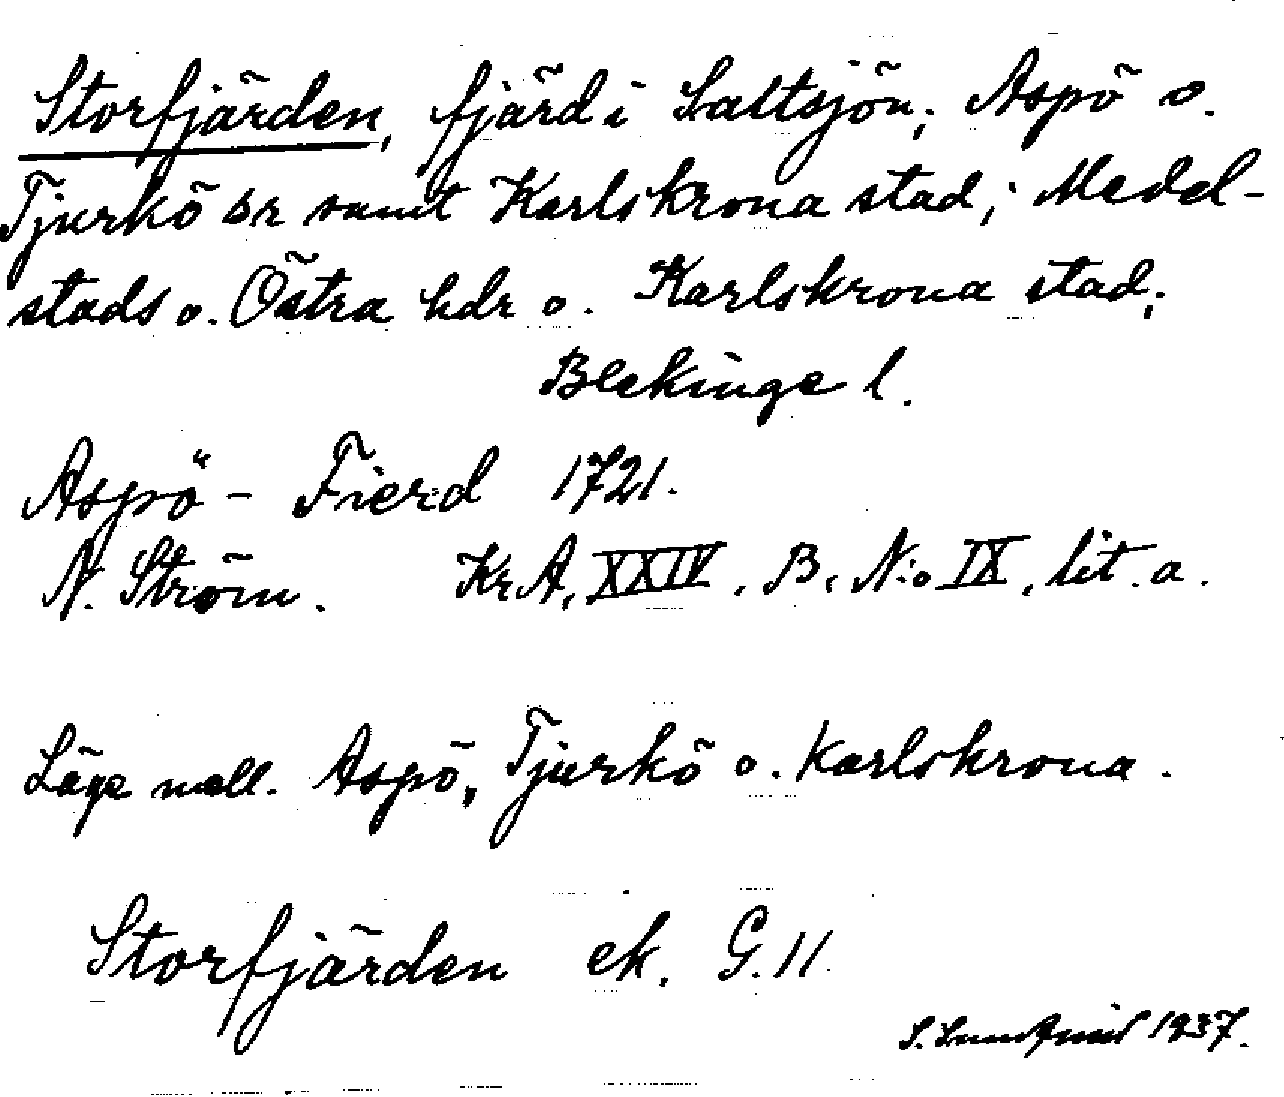 Storfjärden, fjärd i Saltsjön; Aspö o.
Tjurkö sr samt Karlskrona stad; Medel-
stads o. Östra hdr o. Karlskrona stad;
Blekinge l.
Aspö - Fierd 1721.
N. Ström. KrA, XXIV. B. N:o IX, lit. a.
Läge mell. Aspö, Tjurkö o. Karlskrona.
Storfjärden ek. G. 11.
S. Lundquist 1937.